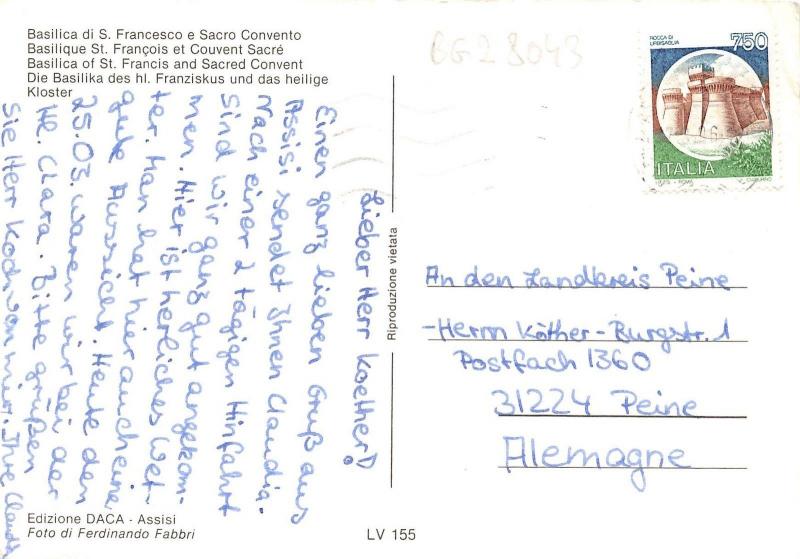 Basilica di S. Francesco e Sacro Convento
Basilique St. François et Couvent Sacré
Basilica of St. Francis and Sacred Convent
Die Basilika des hl. Franziskus und das heilige
Kloster
BG28043
ROCCA DI
URBISAGLIA
750
ITALIA
Lieber Herr Koether!
Einen ganz lieben Gruß aus
Assisi sendet Ihnen Claudia.
Nach einer 2 tägigen Hinfahrt
sind wir ganz gut angekom-
men. Hier ist herliches Wet-
ter. Man hat hier auch eine
gute Aussicht. Heute den
25.03. waren wir bei der
Hl. Clara. Bitte grüßen
Sie Herr Koch von mir. Ihre Claudia
Riproduzione vietata
An den Landkreis Peine
-Herrn Köther-Burgstr. 1
Postfach 1360
31224 Peine
Alemagne
Edizione DACA - Assisi
Foto di Ferdinando Fabbri
LV 155